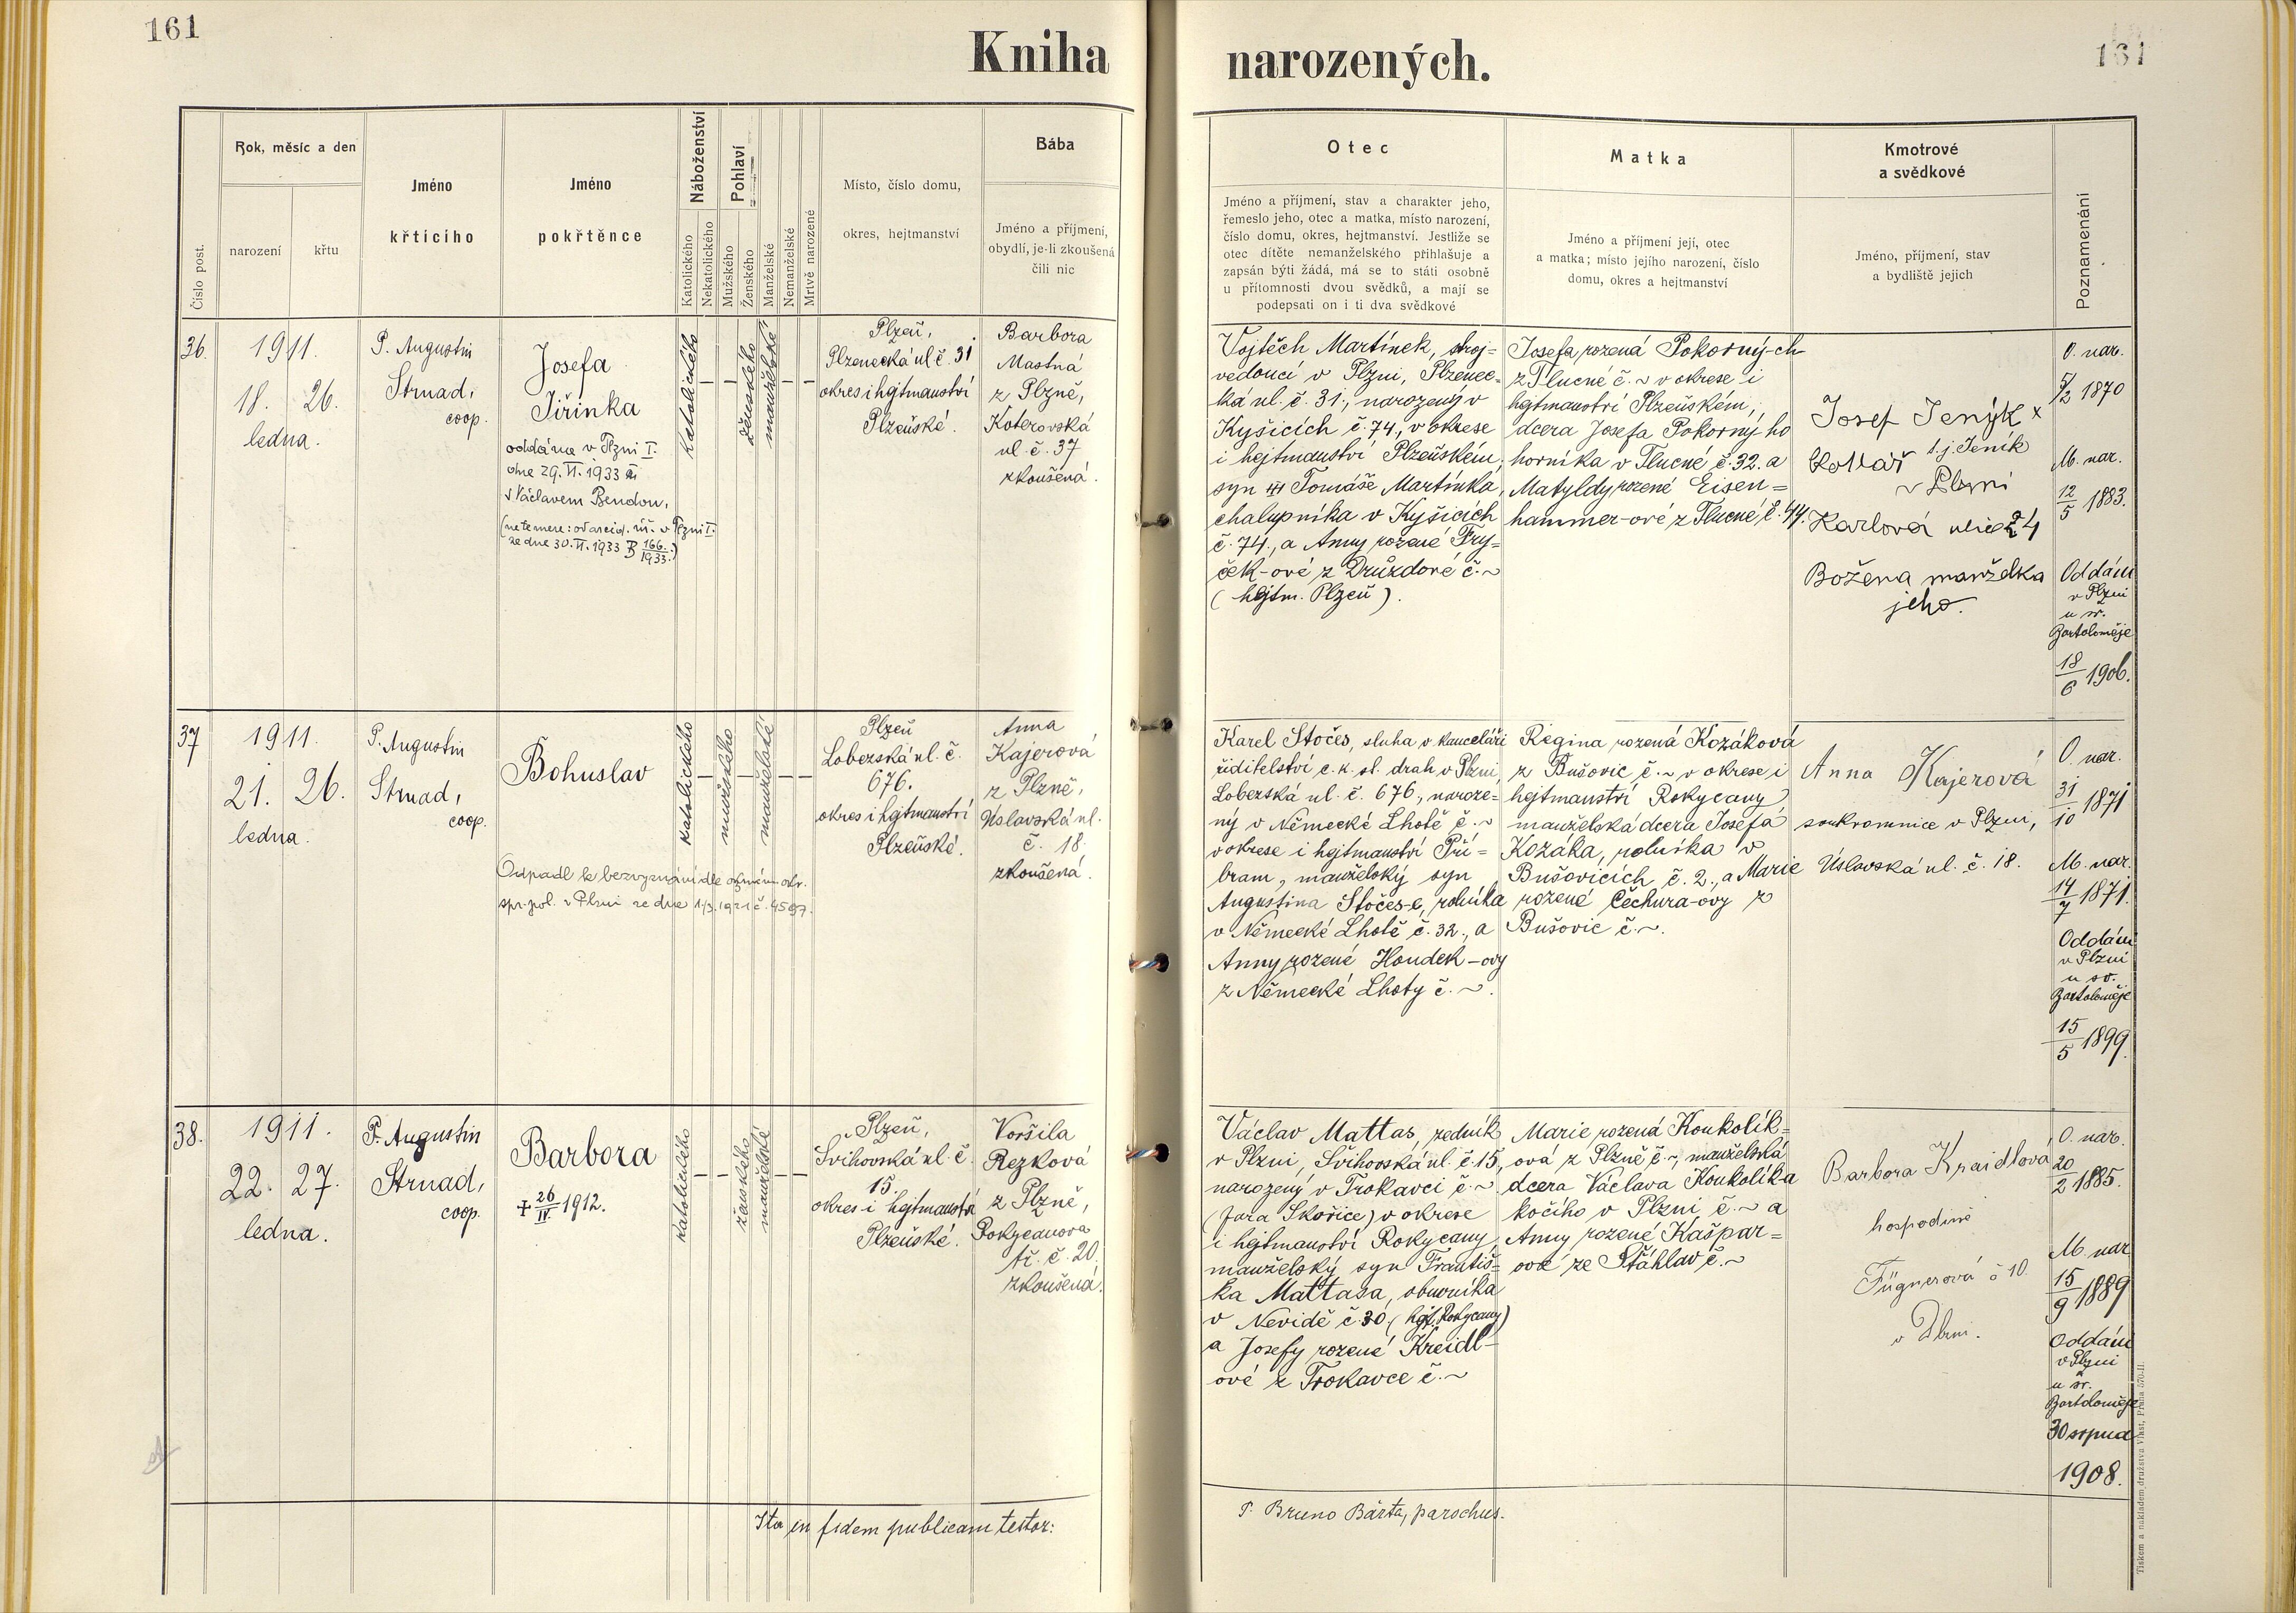 161
161
Kniha narozených.
Číslo post.
Rok, měsíc a den
narození
křtu
Jméno
křticího
Jméno
pokřtěnce
Náboženství
Katolického
Nekatolického
Pohlaví
Mužského
Ženského
Manželské
Nemanželské
Mrtvě narozené
Místo, číslo domu,
okres, hejtmanství
Bába
Jméno a příjmení,
obydlí, je-li zkoušená
čili nic
Otec
Jméno a příjmení, stav a charakter jeho,
řemeslo jeho, otec a matka, místo narození,
číslo domu, okres, hejtmanství. Jestliže se
otec dítěte nemanželského přihlašuje a
zapsán býti žádá, má se to státi osobně
u přítomnosti dvou svědků, a mají se
podepsati on i ti dva svědkové
Matka
Jméno a příjmení její, otec
a matka; místo jejího narození, číslo
domu, okres a hejtmanství
Kmotrové
a svědkové
Jméno, příjmení, stav
a bydliště jejich
Poznamenání
36.
1911.
18. 26.
ledna.
P. Augustin
Strnad,
coop.
Josefa
Jiřinka
oddána v Plzni I.
dne 29.VI.1933
s Václavem Bendou,
(ne temere: od arcid. úř. v Plzni I.
ze dne 30.VI.1933 B 166./1933.)
katolického
ženského
manželské
Plzeň,
Plzenecká ul č. 31
okres i hejtmanství
Plzeňské.
Barbora
Mastná
z Plzně,
Koterovská
ul č. 37
zkoušená.
Vojtěch Martínek, stroj=
vedoucí v Plzni, Plzenec=
ká ul. č. 31., narozený v
Kyšicích č. 74., v okrese
i hejtmanství Plzeňském,
syn Tomáše Martínka,
chalupníka v Kyšicích
č. 74., a Anny rozené Fry=
ček-ové z Druzdové č. ~
(hejtm. Plzeň).
Josefa rozená Pokorný-ch
z Tlucné č. ~ v okrese i
hejtmanství Plzeňském,
dcera Josefa Pokorný ho
horníka v Tlucné č. 32. a
Matyldy rozené Eisen=
hammer-ové z Tlucné č. 44.
Josef Jenýk x
t. j. Jeník
kollář
v Plzni
Karlová ulice 24
Božena manželka
jeho.
O. nar.
5/2 1870
M. nar.
12/5 1883.
Oddáni
v Plzni
u sv.
Bartoloměje
18/6 1906.
37
1911.
21. 26.
ledna.
P. Augustin
Strnad,
coop.
Bohuslav
Odpadl k bezvyznání dle oznám. okr.
spr. pol. v Plzni ze dne 1/3.1921 č. 4597.
katolického
mužského
manželské
Plzeň
Lobezská ul. č.
676.
okres i hejtmanství
Plzeňské.
Anna
Kajerová
z Plzně,
Úslavská ul.
č. 18.
zkoušená.
Karel Stočes, sluha v kanceláři
ředitelství c. k. st. drah v Plzni,
Lobezská ul. č. 676., naroze=
ný v Německé Lhotě č. ~
v okrese i hejtmanství Pří=
bram, manželský syn
Augustina Stočes-e, rolníka
v Německé Lhotě č. 32., a
Anny rozené Houdek-ovy
z Německé Lhoty č. ~.
Regina rozená Kozáková
z Bušovic č. ~ v okrese i
hejtmanství Rokycany
manželská dcera Josefa
Kozáka, rolníka v
Bušovicích č. 2., a Marie
rozené Čechura-ovy z
Bušovic č. ~.
Anna Kajerová
soukromnice v Plzni,
Úslavská ul. č. 18.
O. nar.
31/10 1871
M. nar.
14/7 1871.
Oddáni
v Plzni
u sv.
Bartoloměje
15/5 1899.
38.
1911.
22. 27.
ledna.
P. Augustin
Strnad,
coop.
Barbora
+ 26/IV. 1912.
katolického
ženského
manželské
Plzeň,
Švihovská ul. č
15.
okres i hejtmanství
Plzeňské.
Voršila
Rezková
z Plzně,
Rokycanova
tř. č. 20.
zkoušená.
Václav Mattas, zedník
v Plzni, Švihovská ul. č. 15,
narozený v Trokavci č. ~
(fara Skořice) v okrese
i hejtmanství Rokycany
manželský syn Františ=
ka Mattasa, obuvníka
v Nevidě č. 30, (hejt. Rokycany)
a Josefy rozené Kreidl-
ové z Trokavce č. ~
Marie rozená Koukolík=
ová z Plzně č. ~, manželská
dcera Václava Koukolíka
kočího v Plzni č. ~ a
Anny rozené Kašpar=
ové ze Šťáhlav č. ~
Barbora Kraidlová
hospodině
Fügnerová č 10.
v Plzni.
O. nar.
20/2 1885.
M. nar.
15/9 1889
Oddáni
v Plzni
u sv.
Bartoloměje
30 srpna
1908.
Ita in fidem publicam testor:
P. Bruno Bárta, parochus.
Tiskem a nákladem družstva Vlast, Praha 570-II.